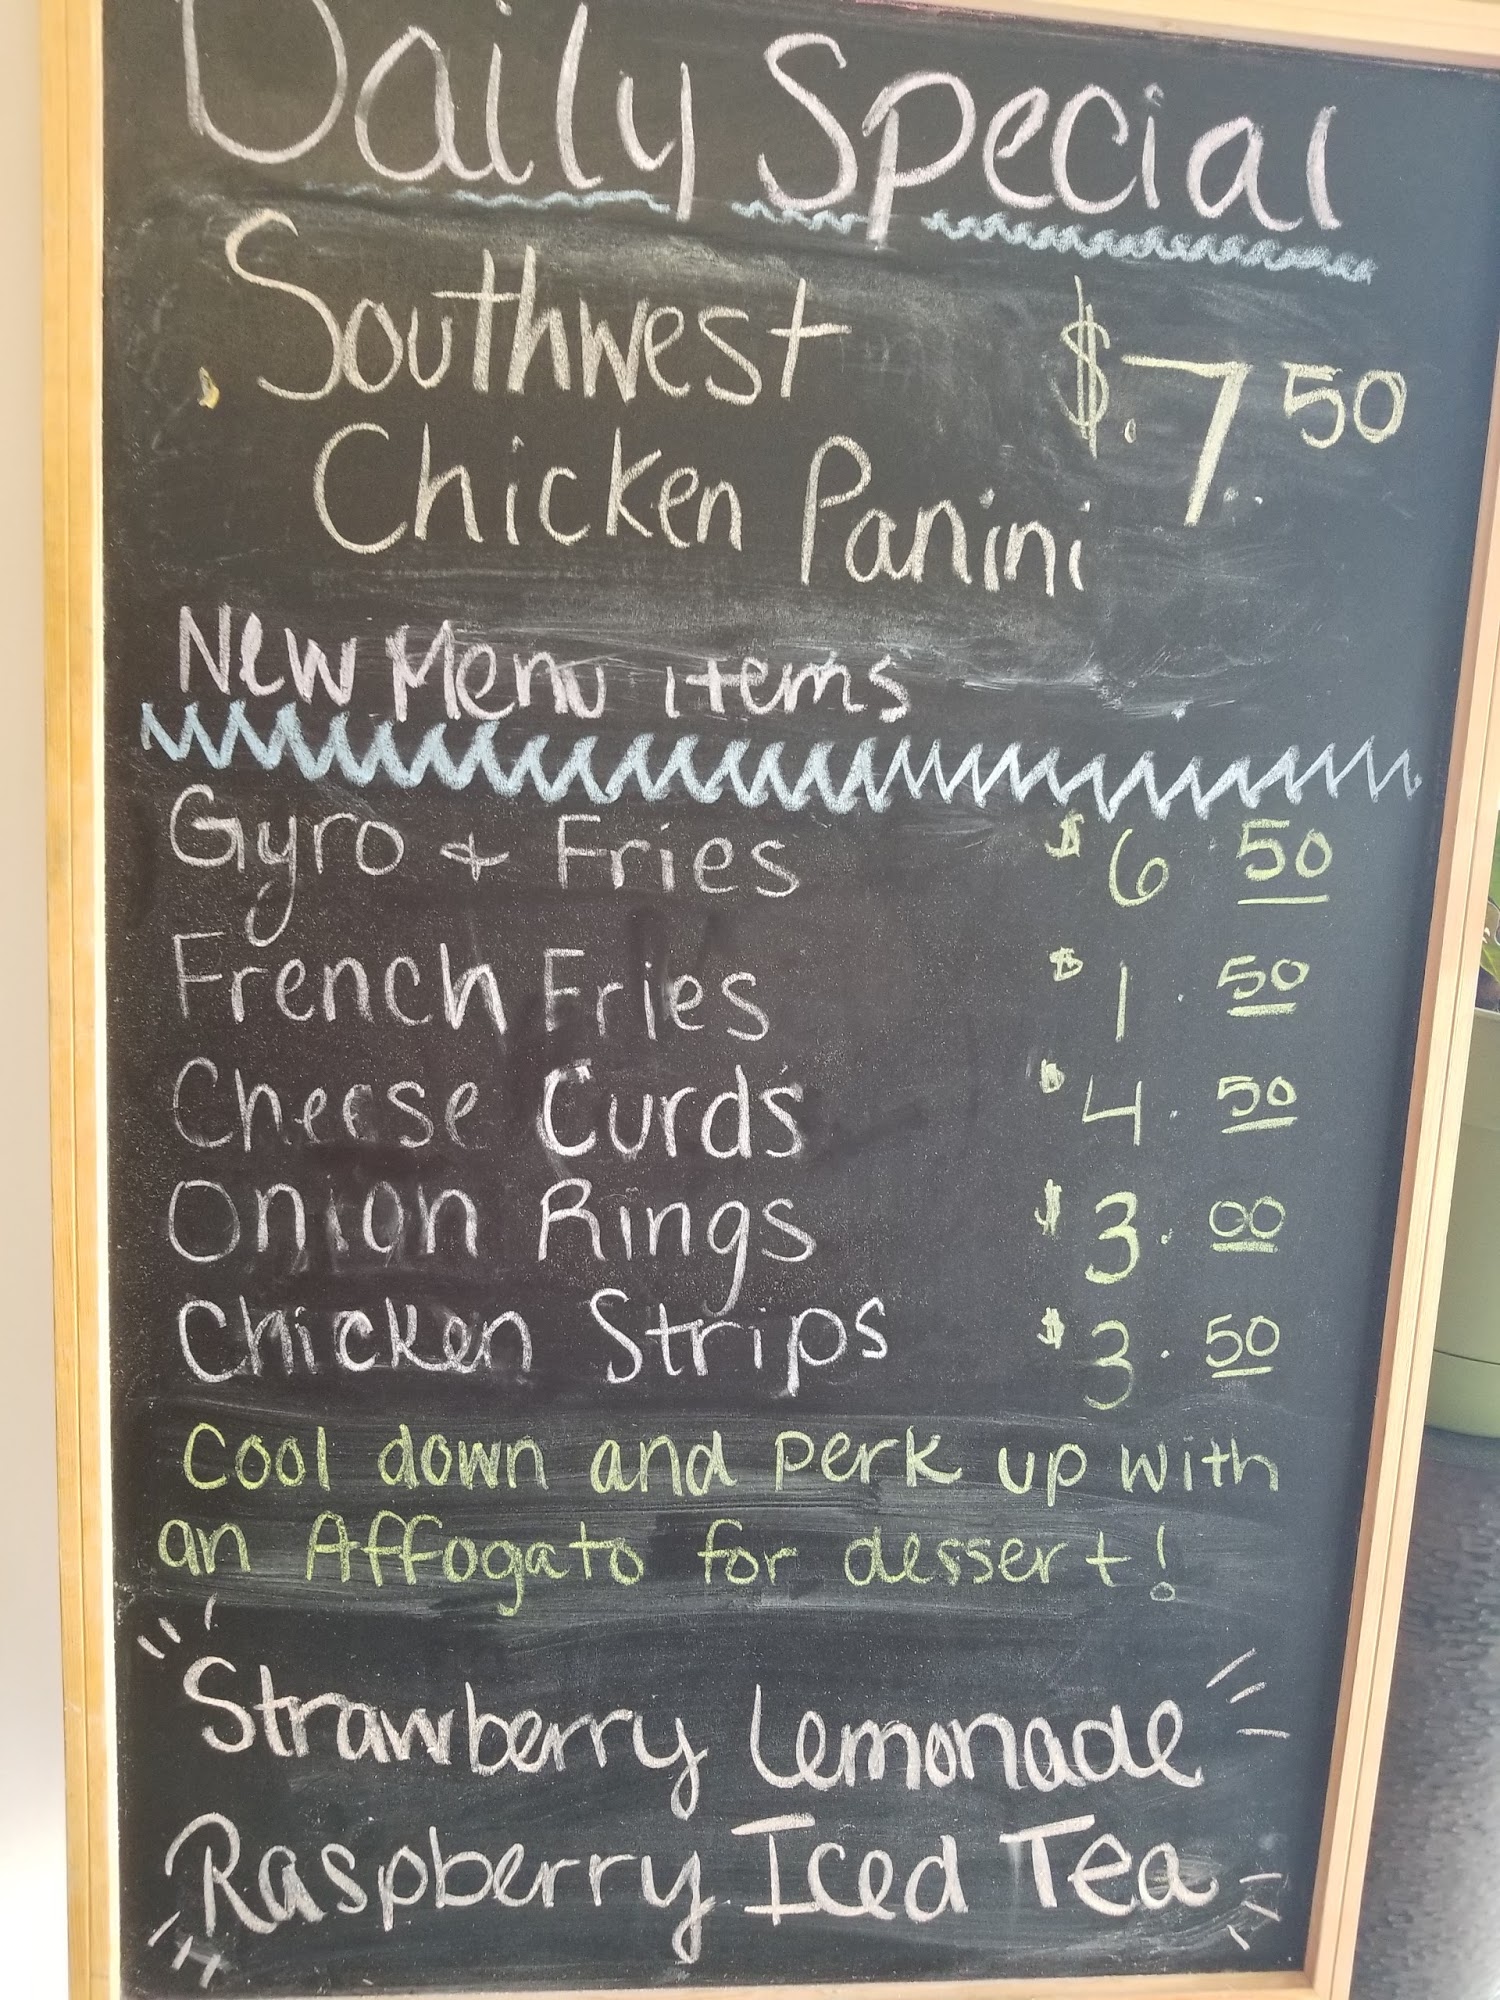 Daily Special
Southwest $.7 50
Chicken Panini
New Menu items
Gyro + Fries $6 50
French Fries $1.50
Cheese Curds $4.50
Onion Rings $3.00
Chicken Strips $3.50
Cool down and perk up with
an Affogato for dessert!
Strawberry Lemonade
Raspberry Iced Tea